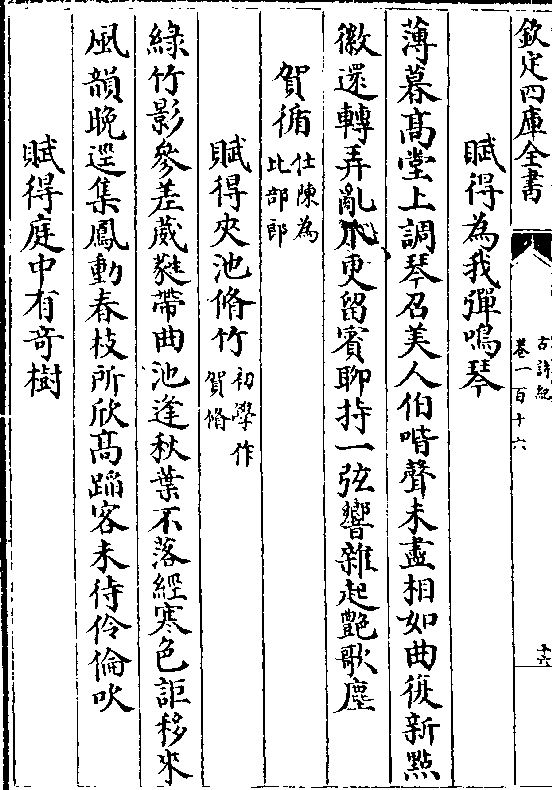 欽定四庫全書
古詩紀
卷一百十六
賦得為我彈鳴琴
薄暮髙堂上調琴召美人伯喈聲未盡相如曲復新點
徽還轉弄亂爪更留賓聊持一弦響雜起艶歌塵
賀循 仕陳為
比部郎
賦得夾池脩竹 初學作
賀脩
綠竹影參差葳蕤帶曲池逢秋葉不落經寒色詎移來
風韻晚逕集鳳動春枝所欣髙蹈客未待伶倫吹
賦得庭中有奇樹